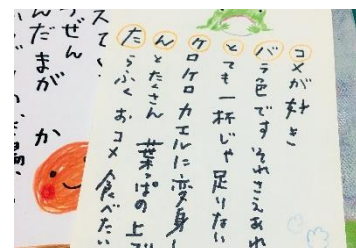 コメが好き
バラ色です それさえあれ
とても一杯じゃ足りない
ケロケロカエルに変身し
んとたくさん 葉っぱの上で
たらふく おコメ 食べたい
か
んだまが
うぜん